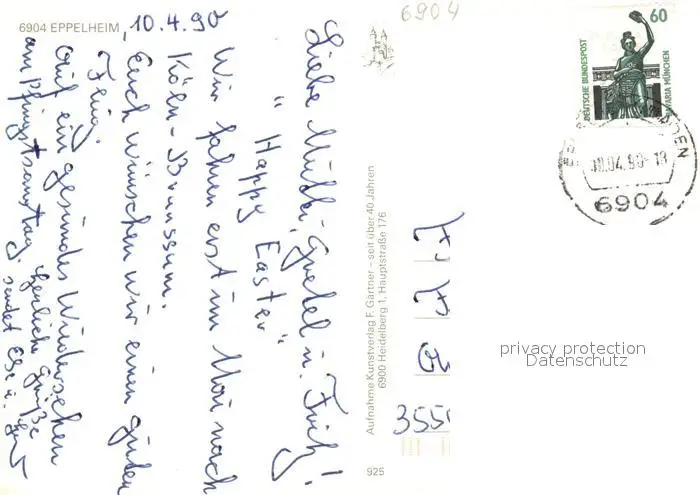 6904 EPPELHEIM
10.4.90
Liebe Mutti, Gretel u. Fritz!
"Happy Easter"
Wir fahren erst im Mai nach
Köln-Brunssum.
Euch wünschen wir einen guten
Flug.
Auf ein gesundes Wiedersehen
am Pfingstsamstag.
Herzliche Grüße
sendet Else u.
Aufnahme Kunstverlag F. Gärtner – seit über 40 Jahren
6900 Heidelberg 1, Hauptstraße 176
925
6904
DEUTSCHE BUNDESPOST
60
BAVARIA MÜNCHEN
10.04.90-18
6904
355
privacy protection
Datenschutz